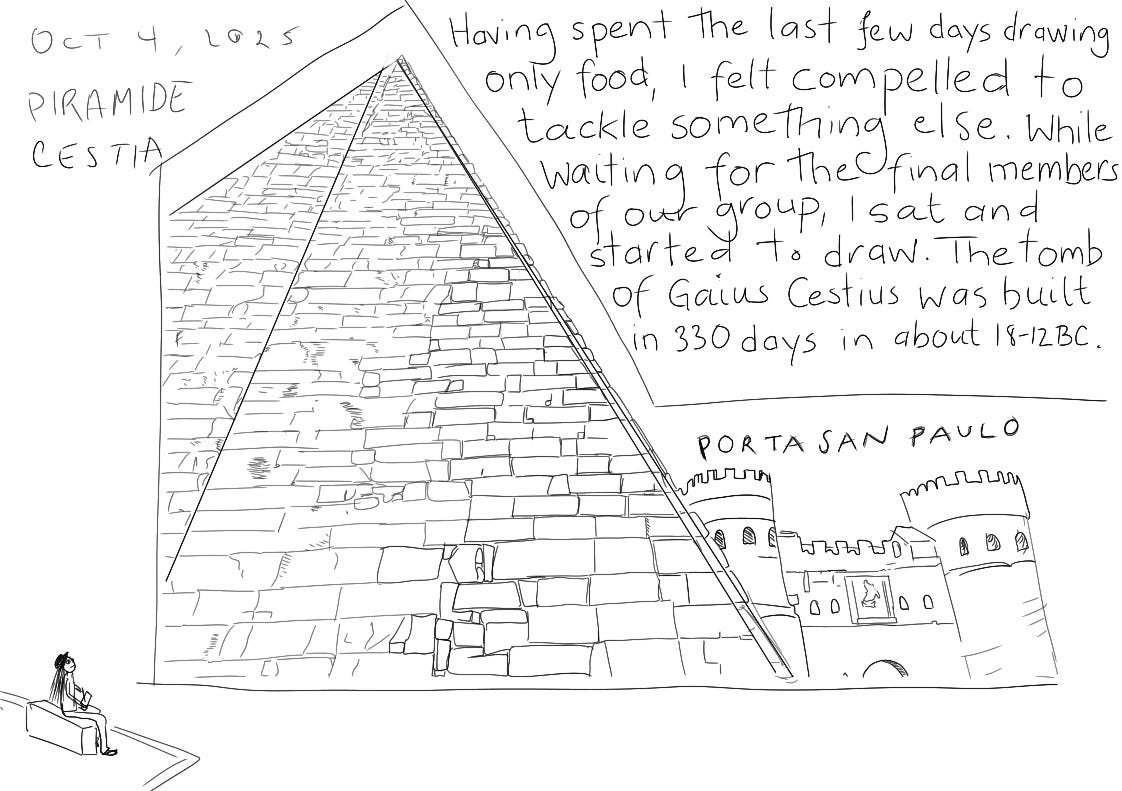 OCT 4, 2025
PIRAMIDE
CESTIA
Having spent the last few days drawing
only food, I felt compelled to
tackle something else. While
waiting for the final members
of our group, I sat and
started to draw. The tomb
of Gaius Cestius was built
in 330 days in about 18-12 BC.
PORTA SAN PAULO